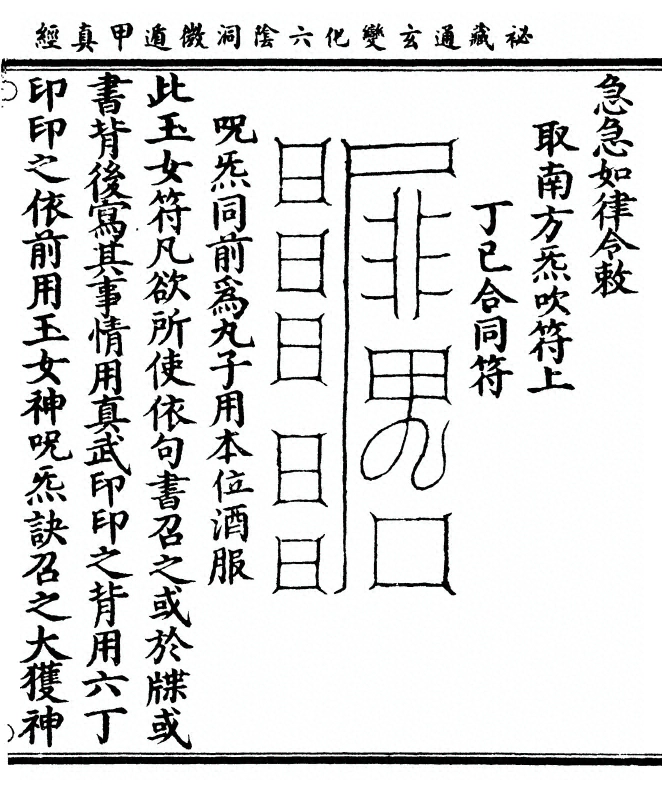 祕藏通玄變化六陰洞微遁甲真經
急急如律令敕
取南方炁吹符上
丁巳合同符
呪炁同前爲丸子用本位酒服
此玉女符凡欲所使依句書召之或於牒或
書背後寫其事情用真武印印之背用六丁
印印之依前用玉女神呪炁訣召之大獲神